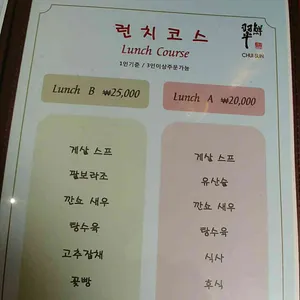 런치코스
Lunch Course
1인기준 / 3인이상주문가능
CHUI SUN
Lunch B ₩25,000
게살 스프
팔보라조
깐쇼 새우
탕수육
고추잡채
꽃빵
Lunch A ₩20,000
게살 스프
유산슬
깐쇼 새우
탕수육
식사
후식